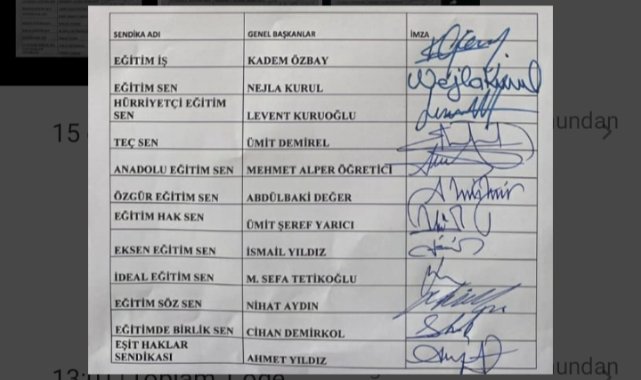 SENDİKA ADI GENEL BAŞKANLAR İMZA
EĞİTİM İŞ KADEM ÖZBAY
EĞİTİM SEN NEJLA KURUL Nejla Kurul
HÜRRİYETÇİ EĞİTİM
SEN LEVENT KURUOĞLU
TEÇ SEN ÜMİT DEMİREL
ANADOLU EĞİTİM SEN MEHMET ALPER ÖĞRETİCİ
ÖZGÜR EĞİTİM SEN ABDÜLBAKİ DEĞER
EĞİTİM HAK SEN ÜMİT ŞEREF YARICI
EKSEN EĞİTİM SEN İSMAİL YILDIZ
İDEAL EĞİTİM SEN M. SEFA TETİKOĞLU
EĞİTİM SÖZ SEN NİHAT AYDIN
EĞİTİMDE BİRLİK SEN CİHAN DEMİRKOL
EŞİT HAKLAR
SENDİKASI AHMET YILDIZ
15